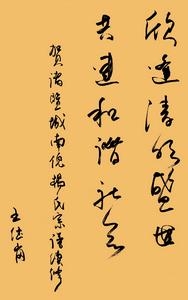 欣逢清明盛世
共建和谐社会
贺诸暨城南倪杨氏宗谱续修